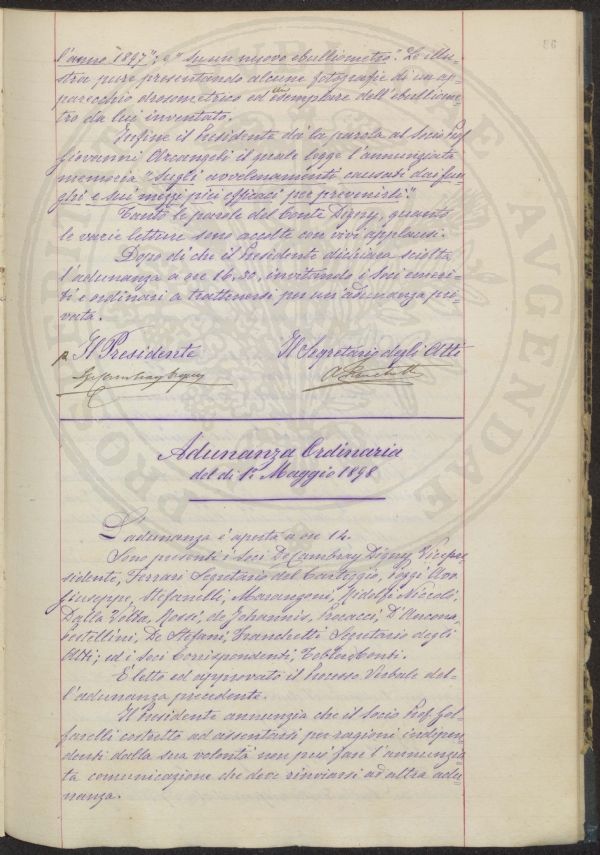 l'anno 1897"; e "Su un nuovo ebulliometro". Le illu-
stra pure presentando alcune fotografie di un ap-
parecchio drosometrico ed esemplare dell'ebulliome-
tro da lui inventato.
Infine il Presidente dà la parola al Socio Prof.
Giovanni Arcangeli il quale legge l'annunziata
memoria "Sugli avvelenamenti causati dai fun-
ghi e sui mezzi più efficaci per prevenirli".
Tanto le parole del Conte Digny, quanto
le varie letture sono accolte con vivi applausi.
Dopo di che il Presidente dichiara sciolta
l'adunanza a ore 16.30, invitando i Soci emeri-
ti e ordinari a trattenersi per un'adunanza pri-
vata.
p. Il Presidente Il Segretario degli Atti
Adunanza Ordinaria
del dì 1º Maggio 1898
L'adunanza è aperta a ore 14.
Sono presenti i Soci De Cambray Digny Vicepre-
sidente, Ferrari Segretario del Carteggio, Poggi Avv.
Giuseppe, Stefanelli, Marangoni, Ridolfi Niccolò,
Dalla Volta, Rossi, de Johannis, Procacci, D'Ancona,
Pestellini, De Stefani, Franchetti Segretario degli
Atti; ed i Soci Corrispondenti, Tobler, Conti.
È letto ed approvato il Processo Verbale del-
l'adunanza precedente.
Il Presidente annunzia che il Socio Prof. Gol-
farelli costretto ad assentarsi per ragioni indipen-
denti dalla sua volontà non può fare l'annunzia-
ta comunicazione che deve rinviarsi ad altra adu-
nanza.